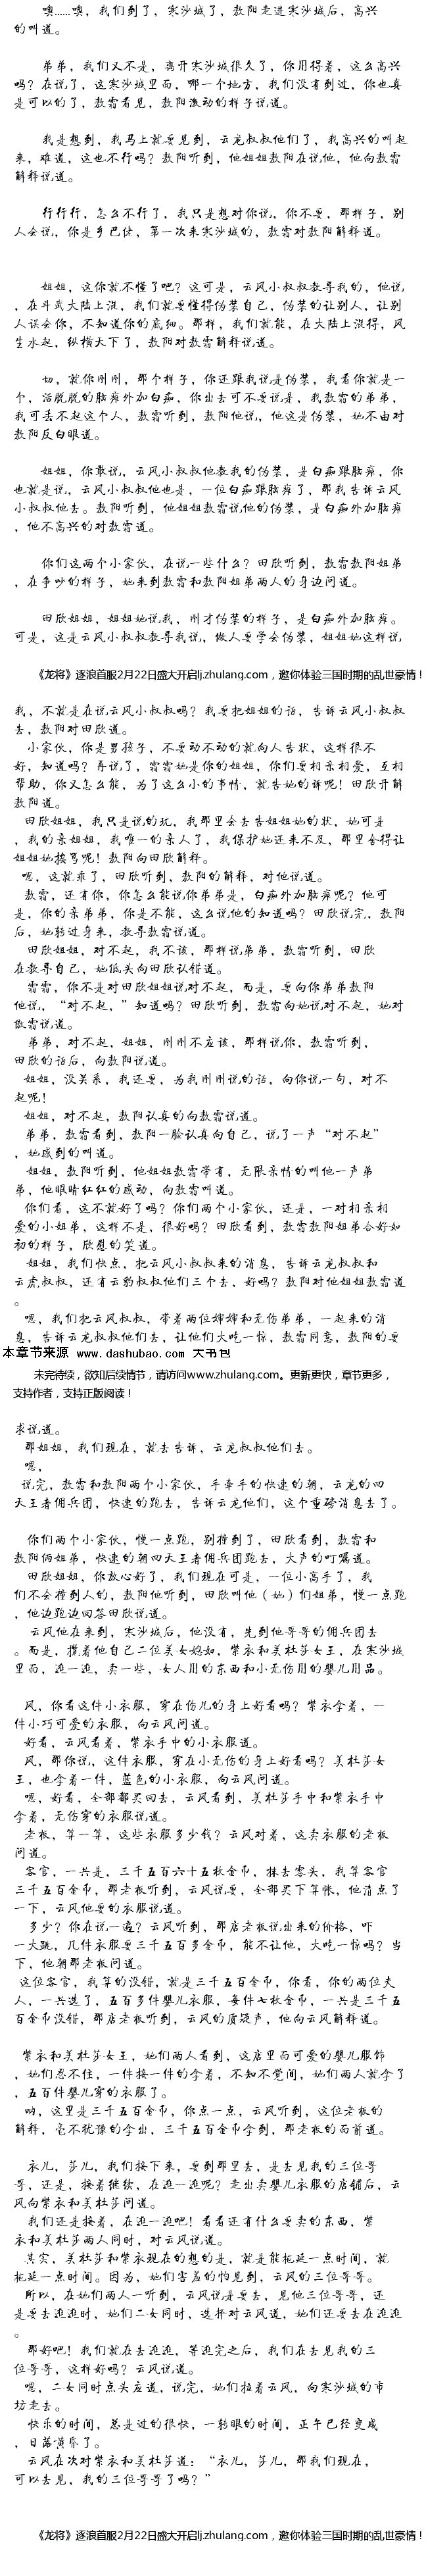 噢……噢，我们到了，寒沙城了，敖阳走进寒沙城后，高兴
的叫道。
弟弟，我们又不是，离开寒沙城很久了，你用得着，这么高兴
吗？在说了，这寒沙城里面，哪一个地方，我们没有到过，你也真
是可以的了，敖雪看见，敖阳激动的样子说道。
我是想到，我马上就要见到，云龙叔叔他们了，我高兴的叫起
来，难道，这也不行吗？敖阳听到，他姐姐敖阳在说他，他向敖雪
解释说道。
行行行，怎么不行了，我只是想对你说，你不要，那样子，别
人会说，你是乡巴佬，第一次来寒沙城的，敖雪对敖阳解释道。
姐姐，这你就不懂了吧？这可是，云风小叔叔教导我的，他说
，在斗武大陆上混，我们就要懂得伪装自己，伪装的让别人，让别
人误会你，不知道你的底细。那样，我们就能，在大陆上混得，风
生水起，纵横天下了，敖阳对敖雪解释说道。
切，就你刚刚，那个样子，你还跟我说是伪装，我看你就是一
个，活脱脱的脑瘫外加白痴，你出去可不要说是，我敖雪的弟弟，
我可丢不起这个人，敖雪听到，敖阳他说，他这是伪装，她不由对
敖阳反白眼道。
姐姐，你敢说，云风小叔叔他教我的伪装，是白痴跟脑瘫，你
也就是说，云风小叔叔他也是，一位白痴跟脑瘫了，那我告诉云风
小叔叔他去。敖阳听到，他姐姐敖雪说他的伪装，是白痴外加脑瘫
，他不高兴的对敖雪道。
你们这两个小家伙，在说一些什么？田欣听到，敖雪敖阳姐弟
，在争吵的样子，她来到敖雪和敖阳姐弟两人的身边问道。
田欣姐姐，姐姐她说我，刚才伪装的样子，是白痴外加脑瘫。
可是，这是云风小叔叔教导我说，做人要学会伪装，姐姐她这样说
《龙将》逐浪首服2月22日盛大开启lj.zhulang.com，邀你体验三国时期的乱世豪情！
我，不就是在说云风小叔叔吗？我要把姐姐的话，告诉云风小叔叔
去，敖阳对田欣道。
小家伙，你是男孩子，不要动不动的就向人告状，这样很不
好，知道吗？再说了，雪雪她是你的姐姐，你们要相亲相爱，互相
帮助，你又怎么能，为了这么小的事情，就告她的诉呢！田欣开解
敖阳道。
田欣姐姐，我只是说的玩，我那里会去告姐姐她的状，她可是
，我的亲姐姐，我唯一的亲人了，我保护她还来不及，那里舍得让
姐姐她挨骂呢！敖阳向田欣解释。
嗯，这就乖了，田欣听到，敖阳的解释，对他说道。
敖雪，还有你，你怎么能说你弟弟是，白痴外加脑瘫呢？他可
是，你的亲弟弟，你是不能，这么说他的知道吗？田欣说完，敖阳
后，她转过身来，教导敖雪说道。
田欣姐姐，对不起，我不该，那样说弟弟，敖雪听到，田欣
在教导自己，她低头向田欣认错道。
雪雪，你不是对田欣姐姐说对不起，而是，要向你弟弟敖阳
他说，“对不起，”知道吗？田欣听到，敖雪向她说对不起，她对
傲雪说道。
弟弟，对不起，姐姐，刚刚不应该，那样说你，敖雪听到，
田欣的话后，向敖阳说道。
姐姐，没关系，我还要，为我刚刚说的话，向你说一句，对不
起呢！
姐姐，对不起，敖阳认真的向敖雪说道。
弟弟，敖雪看到，敖阳一脸认真向自己，说了一声“对不起”
，她感到的叫道。
姐姐，敖阳听到，他姐姐敖雪带有，无限亲情的叫他一声弟
弟，他眼睛红红的感动，向敖雪叫道。
你们看，这不就好了吗？你们两个小家伙，还是，一对相亲相
爱的小姐弟，这样不是，很好吗？田欣看到，敖雪敖阳姐弟合好如
初的样子，欣慰的笑道。
姐姐，我们快点，把云风小叔叔来的消息，告诉云龙叔叔和
云虎叔叔，还有云豹叔叔他们三个去，好吗？敖阳对他姐姐敖雪道
。
嗯，我们把云风叔叔，带着两位婶婶和无伤弟弟，一起来的消
息，告诉云龙叔叔他们去，让他们大吃一惊，敖雪同意，敖阳的要
本章节来源 www.dashubao.com 大书包
未完待续，欲知后续情节，请访问www.zhulang.com。更新更快，章节更多，
支持作者，支持正版阅读！
求说道。
那姐姐，我们现在，就去告诉，云龙叔叔他们去。
嗯，
说完，敖雪和敖阳两个小家伙，手牵手的快速的朝，云龙的四
大王者佣兵团，快速的跑去，告诉云龙他们，这个重磅消息去了。
你们两个小家伙，慢一点跑，别撞到了，田欣看到，敖雪和
敖阳俩姐弟，快速的朝四天王者佣兵团跑去，大声的叮嘱道。
田欣姐姐，你放心好了，我们现在可是，一位小高手了，我
们不会撞到人的，敖阳他听到，田欣叫他（她）们姐弟，慢一点跑
，他边跑边回答田欣说道。
云风他在来到，寒沙城后，他没有，先到他哥哥的佣兵团去
。而是，携着他自己二位美女娇妻，紫衣和美杜莎女王，在寒沙城
里面，逛一逛，卖一些，女人用的东西和小无伤用的婴儿用品。
风，你看这件小衣服，穿在伤儿的身上好看吗？紫衣拿着，一
件小巧可爱的衣服，向云风问道。
好看，云风看着，紫衣手中的小衣服道。
风，那你说，这件衣服，穿在小无伤的身上好看吗？美杜莎女
王，也拿着一件，蓝色的小衣服，向云风问道。
嗯，好看，全部都买回去，云风看到，美杜莎手中和紫衣手中
拿着，无伤穿的衣服说道。
老板，算一算，这些衣服多少钱？云风对着，这卖衣服的老板
问道。
客官，一共是，三千五百六十五枚金币，抹去零头，我算客官
三千五百金币，那老板听到，云风说要，全部买下算帐，他清点了
一下，云风他要的衣服说道。
多少？你在说一遍？云风听到，那店老板说出来的价格，吓
一大跳，几件衣服要三千五百多金币，能不让他，大吃一惊吗？当
下，他朝那老板问道。
这位客官，我算的没错，就是三千五百金币，你看，你的两位夫
人，一共选了，五百多件婴儿衣服，每件七枚金币，一共是三千五
百金币没错，那店老板听到，云风的质疑声，他向云风解释道。
紫衣和美杜莎女王，她们两人看到，这店里面可爱的婴儿服饰
，她们忍不住，一件接一件的拿着，不知不觉间，她们两人就拿了
，五百件婴儿穿的衣服了。
呐，这里是三千五百金币，你点一点，云风听到，这位老板的
解释，毫不犹豫的拿出，三千五百金币拿到，那老板的面前道。
衣儿，莎儿，我们接下来，要到那里去，是去见我的三位哥
哥，还是，接着继续，在逛一逛呢？走出卖婴儿衣服的店铺后，云
风向紫衣和美杜莎问道。
我们还是接着，在逛一逛吧！看看还有什么要卖的东西，紫
衣和美杜莎两人同时，对云风说道。
其实，美杜莎和紫衣现在的想的是，就是能拖延一点时间，就
拖延一点时间。因为，她们害羞的怕见到，云风的三位哥哥。
所以，在她们两人一听到，云风说是要去，见他三位哥哥，还
是要去逛逛时，她们二女同时，选择对云风道，她们还要去在逛逛
。
那好吧！我们就在去逛逛，等逛完之后，我们在去见我的三
位哥哥，这样好吗？云风说道。
嗯，二女同时点头应道，说完，她们拉着云风，向寒沙城的市
坊走去。
快乐的时间，总是过的很快，一转眼的时间，正午已经变成
，日落黄昏了。
云风在次对紫衣和美杜莎道：“衣儿，莎儿，那我们现在，
可以去见，我的三位哥哥了吗？”
《龙将》逐浪首服2月22日盛大开启lj.zhulang.com，邀你体验三国时期的乱世豪情！